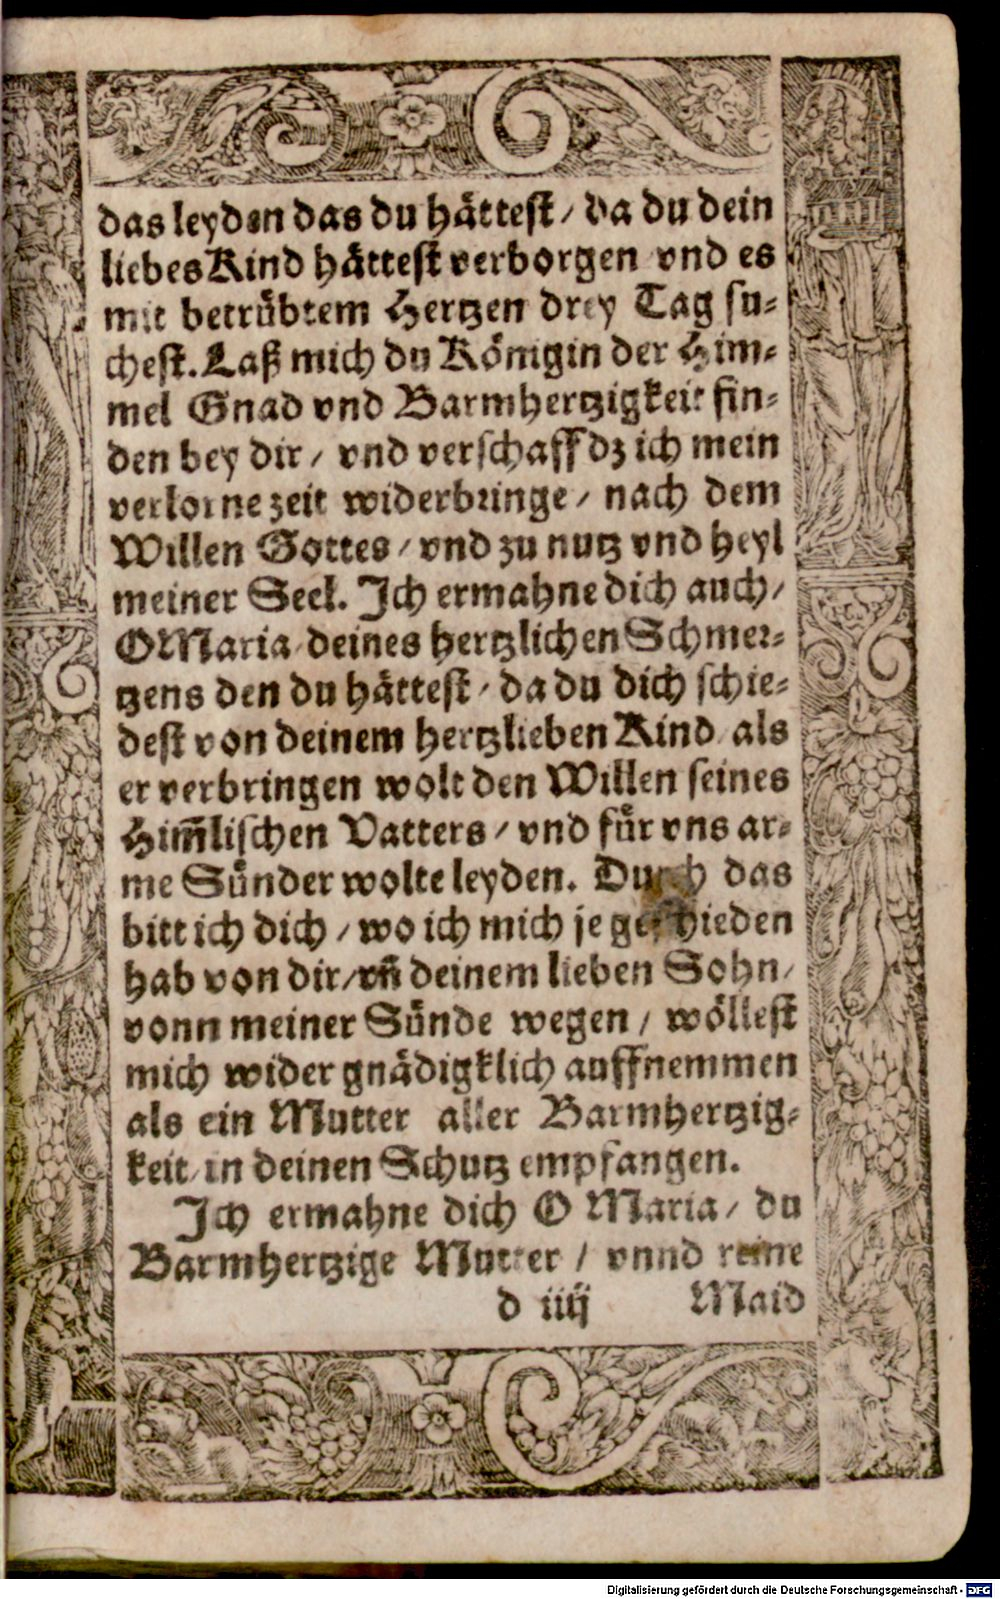 das leyden das du hättest / da du dein
liebes Kind hättest verborgen vnd es
mit betrübtem Hertzen drey Tag su-
chest. Laß mich du Königin der Him-
mel Gnad vnd Barmhertzigkeit fin-
den bey dir / vnd verschaff dz ich mein
verlorne zeit widerbringe / nach dem
Willen Gottes / vnd zu nutz vnd heyl
meiner Seel. Ich ermahne dich auch /
O Maria deines hertzlichen Schmer-
tzens den du hättest / da du dich schie-
dest von deinem hertzlieben Kind als
er verbringen wolt den Willen seines
Him̃lischen Vatters / vnd für vns ar-
me Sünder wolte leyden. Durch das
bitt ich dich / wo ich mich je geschieden
hab von dir / vñ deinem lieben Sohn /
vonn meiner Sünde wegen / wöllest
mich wider gnädigklich auffnemmen
als ein Mutter aller Barmhertzig-
keit / in deinen Schutz empfangen.
Ich ermahne dich O Maria / du
Barmhertzige Mutter / vnnd reine
d iiij Maid
Digitalisierung gefördert durch die Deutsche Forschungsgemeinschaft - DFG